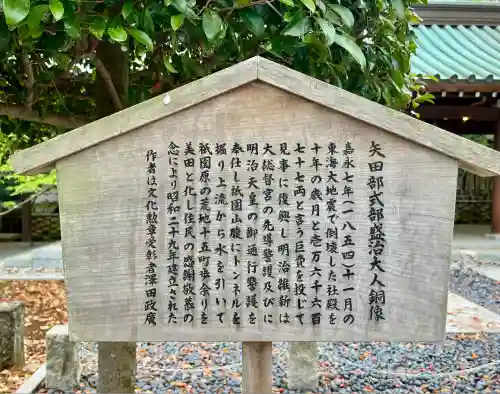 矢田部式部盛治大人銅像
嘉永七年(一八五四)十一月の
東海大地震で倒壊した社殿を
十年の歳月と壱万六千六百
七十七両と言う巨費を投じて
見事に復興し明治維新は
大総督宮の先導警護及び
明治天皇の御通行警護を
奉仕し祇園山裾にトンネルを
掘り上流から水を引いて
祇園原の荒地十五町歩余りを
美田と化し住民の感謝敬慕の
念により昭和二十九年建立された
作者は文化勲章受彰者澤田政廣